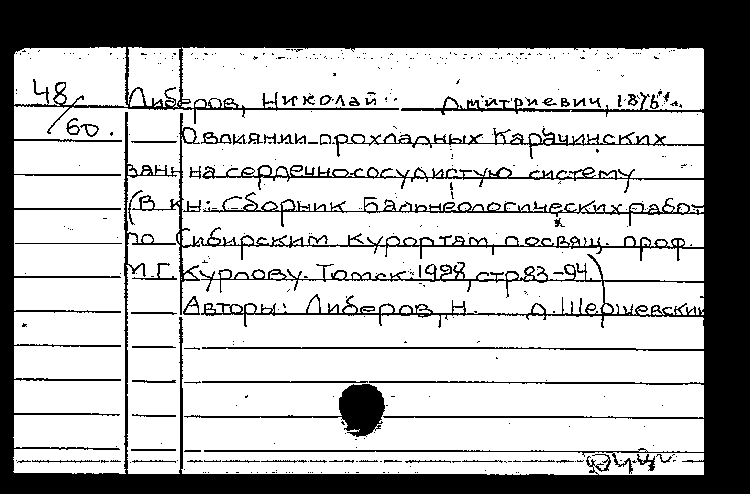 48/60. Либеров, Николай Дмитриевич, 1876 г.
О влиянии прохладных Карачинских
ванн на сердечнососудистую систему
(В кн: Сборник Бальнеологических работ
по Сибирским курортам, посвящ. проф.
М.Г. Курлову. Томск. 1928, стр. 83-94.)
Авторы: Либеров, Н. Д. Шершевский